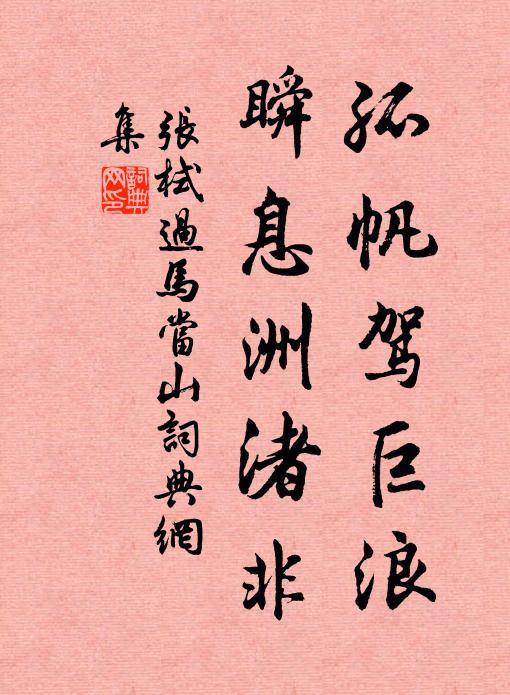 孤帆駕巨浪
瞬息洲渚非
張栻過馬當山詞典網
集
詞典
网印